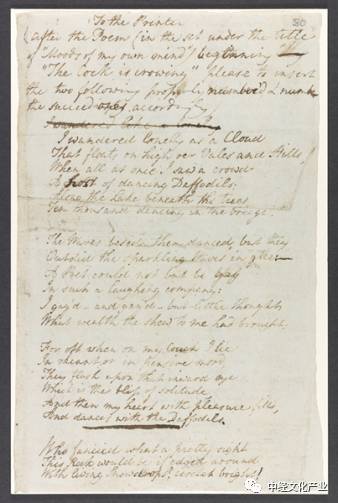 To the Printer
80
(after the Poem (in the set under the title
of "Moods of my own mind") beginning
"The Cock is crowing" please to insert
the two following properly numbered & numb
the succeeding accordingly
I wandered like a lonely
I wandered lonely as a Cloud
That floats on high o'er Vales and Hills,
When all at once I saw a crowd
A host of dancing Daffodils;
Along the Lake, beneath the trees
Ten thousand dancing in the breeze.
The Waves beside them danced, but they
Outdid the sparkling Waves in glee:—
A Poet could not but be gay
In such a laughing company:
I gaz'd—and gaz'd—but little thought
What wealth the shew to me had brought;
For oft when on my couch I lie
In vacant or in pensive mood
They flash upon that inward eye
Which is the bliss of solitude,
And then my heart with pleasure fills,
And dances with the Daffodils.
Who fancied what a pretty sight
This Rock would be if edged around
With living Snowdrops? circlet bright!
中经文化产业